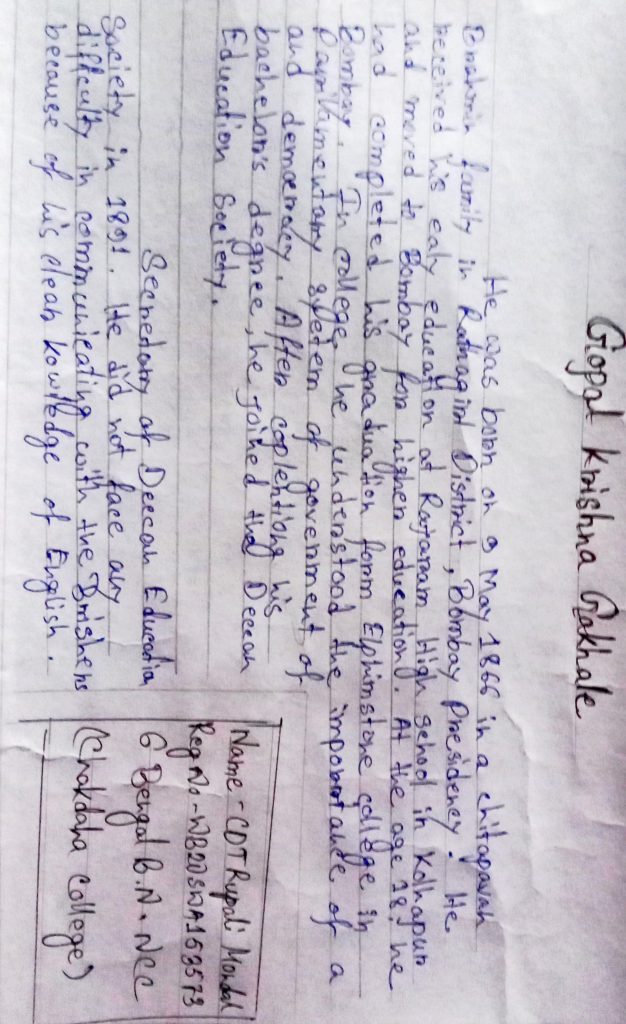 Gopal Krishna Gakhale
He was born on 9 May 1866 in a chitapavan
Brahmin family in Ratnagiri District, Bombay Presidency. He
received his ealy education at Rajaram High school in Kolhapur
and moved to Bombay for higher education. At the age 18, he
had completed his graduation form Elphinstone college in
Bombay. In college, he understood the importance of a
Parliamentary system of government of
and democracy. After
bachelor's degree, he joined the Deccan
Education Society.
Secretary of Deccan Education
Society in 1891. He did not face any
difficulty in communicating with the Brishers
because of his clear kowledge of English.
Name - CDT Rupali Mondal
Reg No - WB20SWA163573
6 Bengal B.N. NCC
(Chakdaha College)